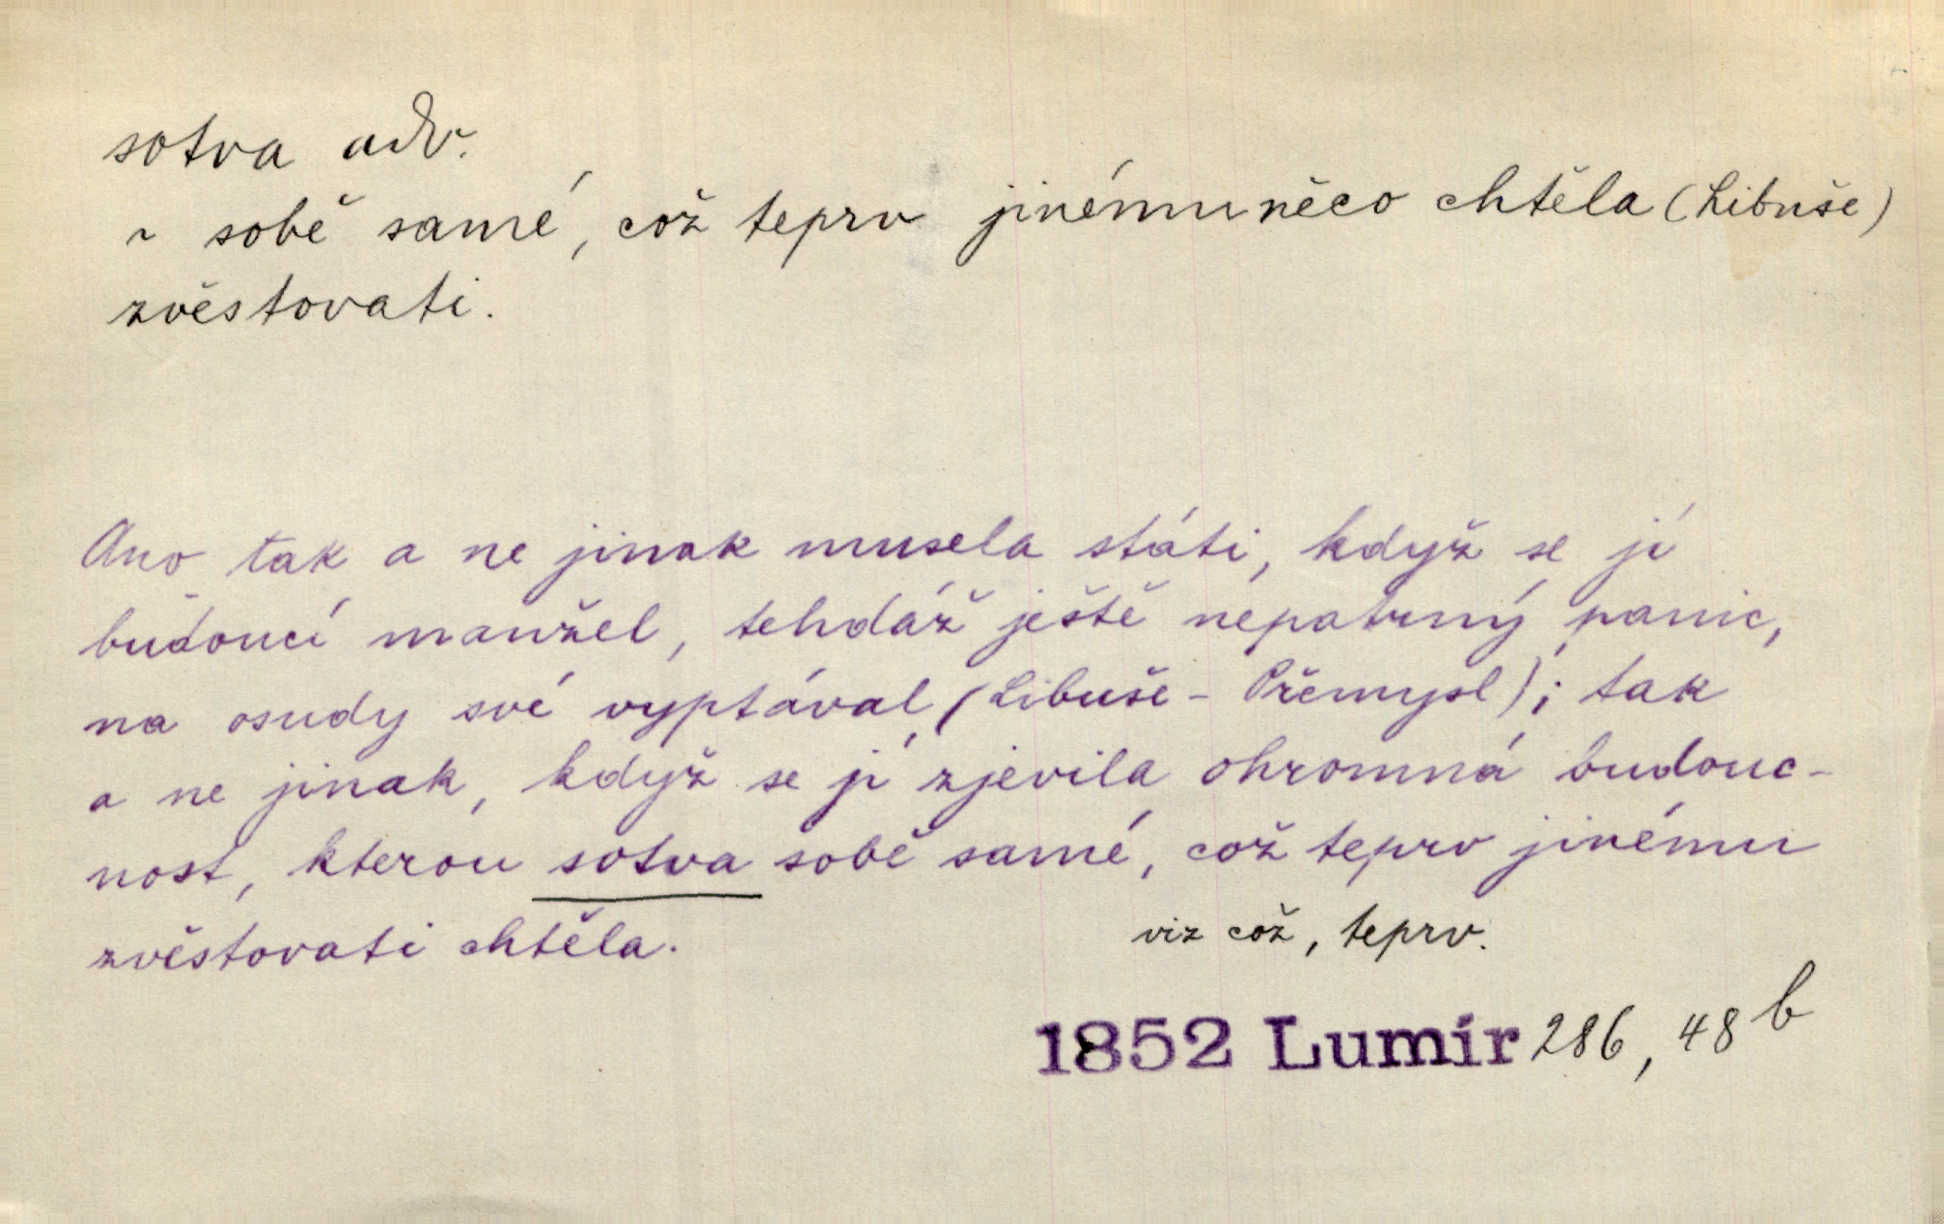 sotva adv.
~ sobě samé, což teprv jinému něco chtěla (Libuše)
zvěstovati.
Ano tak a ne jinak musela státi, když se jí
budoucí manžel, tehdáž ještě nepatrný panic,
na osudy své vyptával (Libuše - Přemysl); tak
a ne jinak, když se jí zjevila ohromná budouc-
nost, kterou sotva sobě samé, což teprv jinému
zvěstovati chtěla.
viz což, teprv.
1852 Lumír 286, 48 b